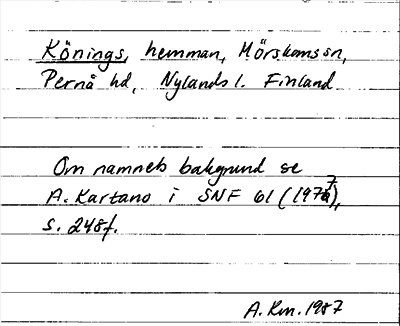 Könings, hemman, Mörskoms sn,
Pernå hd, Nylands l. Finland
Om namnets bakgrund se
A. Kartano i SNF 61 (1977),
s. 248f.
A. Rm. 1987